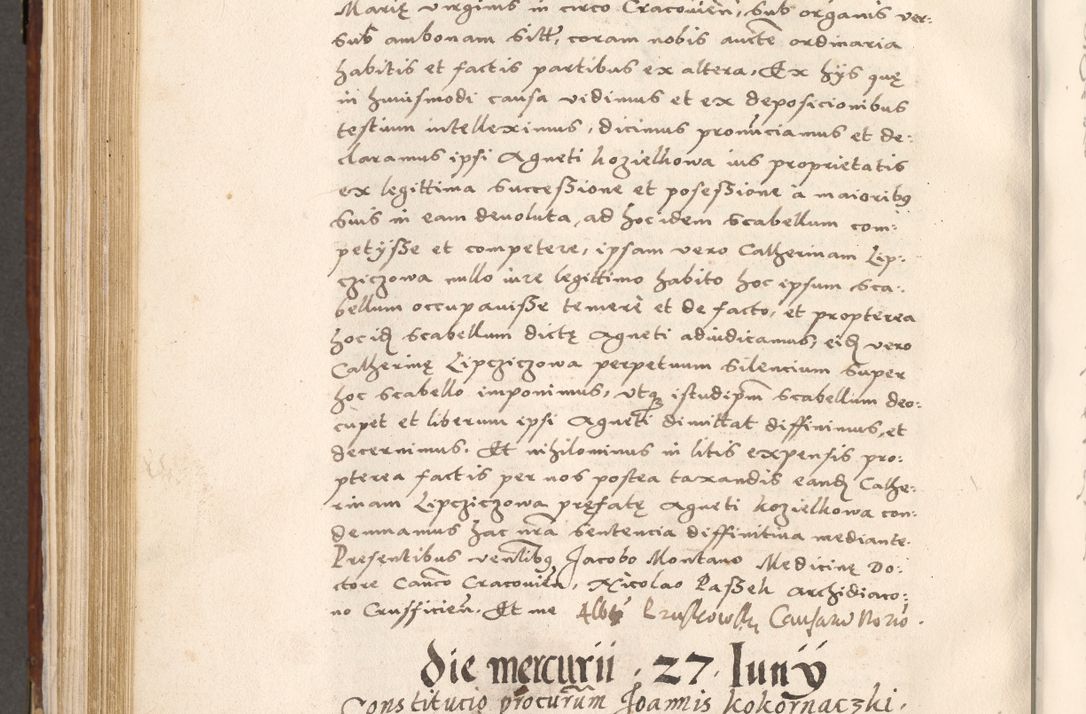 Marię virginis in circo Cracovien̄, sub organis ver:
sus ambonam sitt, coram nobis aucte ordinaria
habitis et factis partibus ex altera, Ex hys quę
in huiusmodi causa vidimus et ex deposicionibus
testium intelleximus, dicimus pronūciamus et de:
claramus ipsi Agneti kozielkowa ius proprietatis
ex legittima succeßione et poseßione a maioribq
suis in eam devoluta, ad hoc idem scabellum com:
petyße et competere, ipsam vero Catherinam Lip:
cziczowa nullo iure legittimo habito hoc ipsum sca:
bellum occupauiße temere et de facto, et propterea
hoc idz scabellum dictę Agneti adiudicamus, eidz vero
Catherinę Lipcziczowa perpetuum silencium super
hoc scabello imponimus, utqz istud ipm̄ scabellum deo:
cupet et liberum ipsi Agneti dimittat diffinimus, et
decernimus. Et nihilominus in litis expensis pro:
pterea factis per nos postea taxandis eandz Cathe:
rinam Lipcziczowa pręfatę Agneti kozielkowa con:
demnamus hac nr̄a sentencia diffinitiva mediante.
Presentibus ven̄libq Jacobo Montano Medicinę Do:
ctore Can̄co Cracovien̄, Nicolao Paßek Archidiaco:
no Crusficien̄. Et me Alb
die mercurii . 27. Iunÿ
Constitucio procur̄um Joannis kokornaczki.